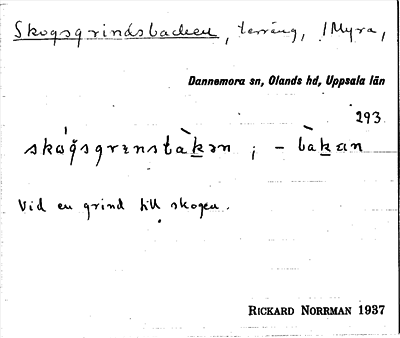 Skogsgrindsbacken, terräng, /Myra,
Dannemora sn, Olands hd, Uppsala län
293
skógsgrɪnsbàkən ; - bàkan
Vid en grind till skogen.
RICKARD NORRMAN 1937